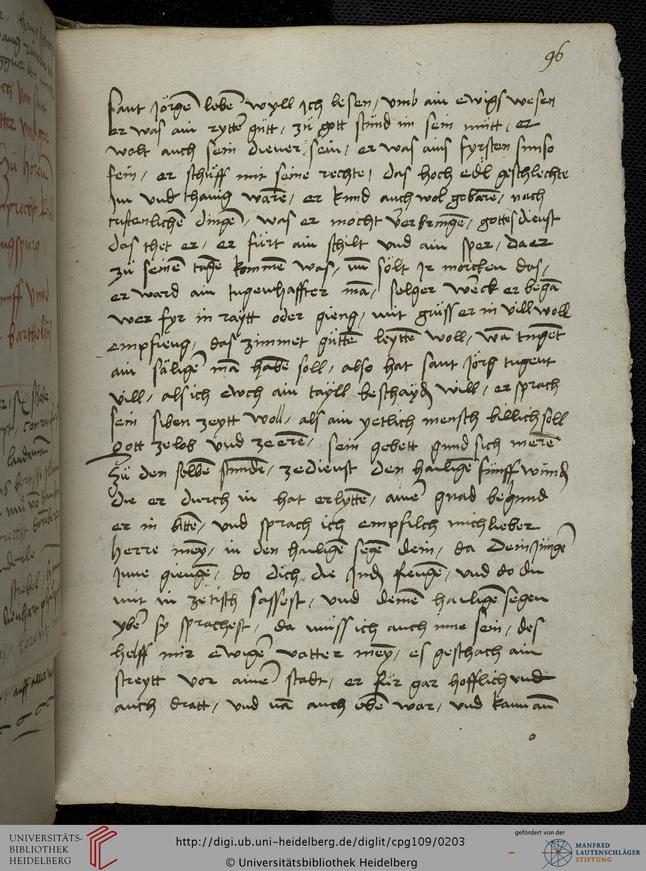 96
Sant Jörgē lebē wyll ich lesen / vmb ain ewigs wesen
er was ain rytter gůtt / zů gott stůnd im sein můtt / er
wolt auch sein diener sein / er was ains fyrsten
fein / er schůff mir seine rechte / das hoch edl geschlechte
Im vnd wāre / er kund auch wol gebarē / nach
cristenlichē dingē / was er mocht verbringē / gottes dienst
das thet er / er fůrt ain schilt vnd ain sper / da er
zů seinē tagē kommē was / nū sölt Ir mörcken das /
er ward ain tugenhaffter mā / selger werck er begā
wer fyr in raytt oder gieng / mit grůss er in vill woll
empfieng / das zimmet gůttē leyttē woll / wā tuget
ain säligen mā habē soll / also hat sant Jörg tugent
vill / als ich ewch ain tayll beschayd will / er sprach
sein siben zeytt woll / als ain yetlich mensch billich soll
gott zelob vnd zeere / sein gebett gund sich merē
zů den selbē stundē / zedienst den hailigē fünff wund
die er durch in hat erlyttē / ainer gnad begund
er in bittē / vnd sprach ich empfilch mich lieber
herre mey / in den hailigē segē dein / da Dein Jünger
Inne giengē / do dich die Judē fiengē / vnd do du
mit in zetisch sassest / vnd deinē hailigē segen
yber sy sprachest / da můss ich auch inne sein / des
helff mir ewiger vatter mey / es geschach ain
streytt vor ainer statt / er fůr gar hofflich vnd
auch dratt / vnd auch ebē war / vnd kam an
UNIVERSITÄTS-
BIBLIOTHEK
HEIDELBERG
http://digi.ub.uni-heidelberg.de/diglit/cpg109/0203
© Universitätsbibliothek Heidelberg
gefördert von der
MANFRED
LAUTENSCHLÄGER
STIFTUNG